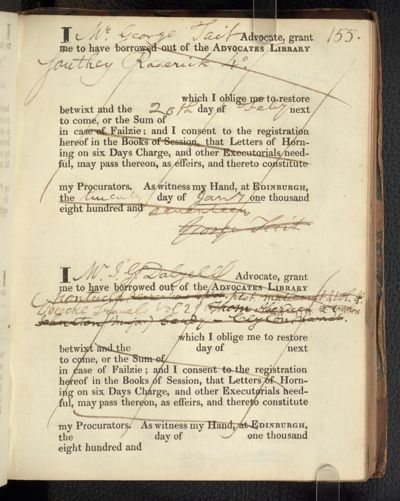 155.
I Mr. George Tait Advocate, grant
me to have borrowed out of the ADVOCATES LIBRARY
Southey Roderick 4o.
which I oblige me to restore
betwixt and the 20th day of Feby next
to come, or the Sum of
in case of Failzie; and I consent to the registration
hereof in the Books of Session, that Letters of Horn-
ing on six Days Charge, and other Executorials need-
ful, may pass thereon, as effeirs, and thereto constitute
my Procurators. As witness my Hand, at EDINBURGH,
the twenty day of Jany one thousand
eight hundred and seventeen
George Tait
I Mr. J. G. Dalyell Advocate, grant
me to have borrowed out of the ADVOCATES LIBRARY
which I oblige me to restore
betwixt and the day of next
to come, or the Sum of
in case of Failzie; and I consent to the registration
hereof in the Books of Session, that Letters of Horn-
ing on six Days Charge, and other Executorials need-
ful, may pass thereon, as effeirs, and thereto constitute
my Procurators. As witness my Hand, at EDINBURGH,
the day of one thousand
eight hundred and